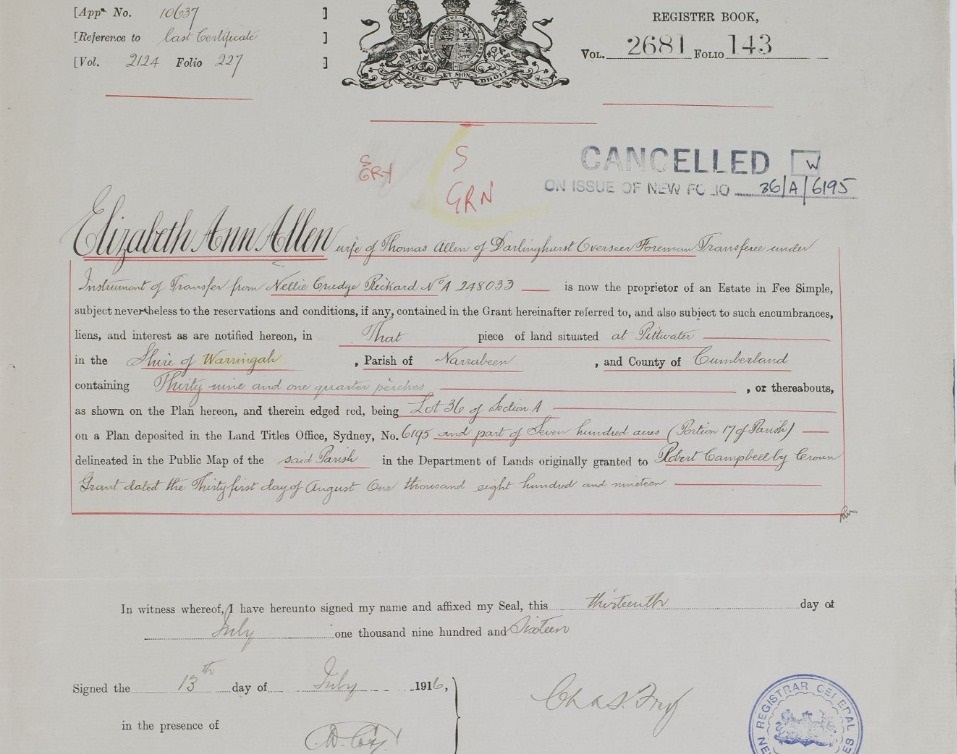 [Appn No. 10637 ]
[Reference to Last Certificate ]
[Vol. 2124 Folio 227 ]
DIEU ET MON DROIT
REGISTER BOOK,
VOL. 2681 FOLIO 143
S
GRN
CANCELLED W
ON ISSUE OF NEW FOLIO 36/A/6195
Elizabeth Ann Allen wife of Thomas Allen of Darlinghurst Overseer Foreman Transferee under
Instrument of Transfer from Nellie Crudge Rickard No A 248033 is now the proprietor of an Estate in Fee Simple,
subject nevertheless to the reservations and conditions, if any, contained in the Grant hereinafter referred to, and also subject to such encumbrances,
liens, and interest as are notified hereon, in That piece of land situated at Pittwater
in the Shire of Warringah , Parish of Narrabeen , and County of Cumberland
containing Thirty nine and one quarter perches , or thereabouts,
as shown on the Plan hereon, and therein edged red, being Lot 36 of Section A
on a Plan deposited in the Land Titles Office, Sydney, No. 6195 and part of Seven hundred acres (Portion 17 of Parish)
delineated in the Public Map of the said Parish in the Department of Lands originally granted to Robert Campbell by Crown
Grant dated the Thirty first day of August One thousand eight hundred and nineteen
In witness whereof, I have hereunto signed my name and affixed my Seal, this thirteenth day of
July one thousand nine hundred and Sixteen
Signed the 13th day of July 1916,
in the presence of
REGISTRAR GENERAL